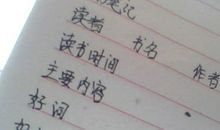 笔记
读稿 书名 作者
读书时间
主要内容
好词